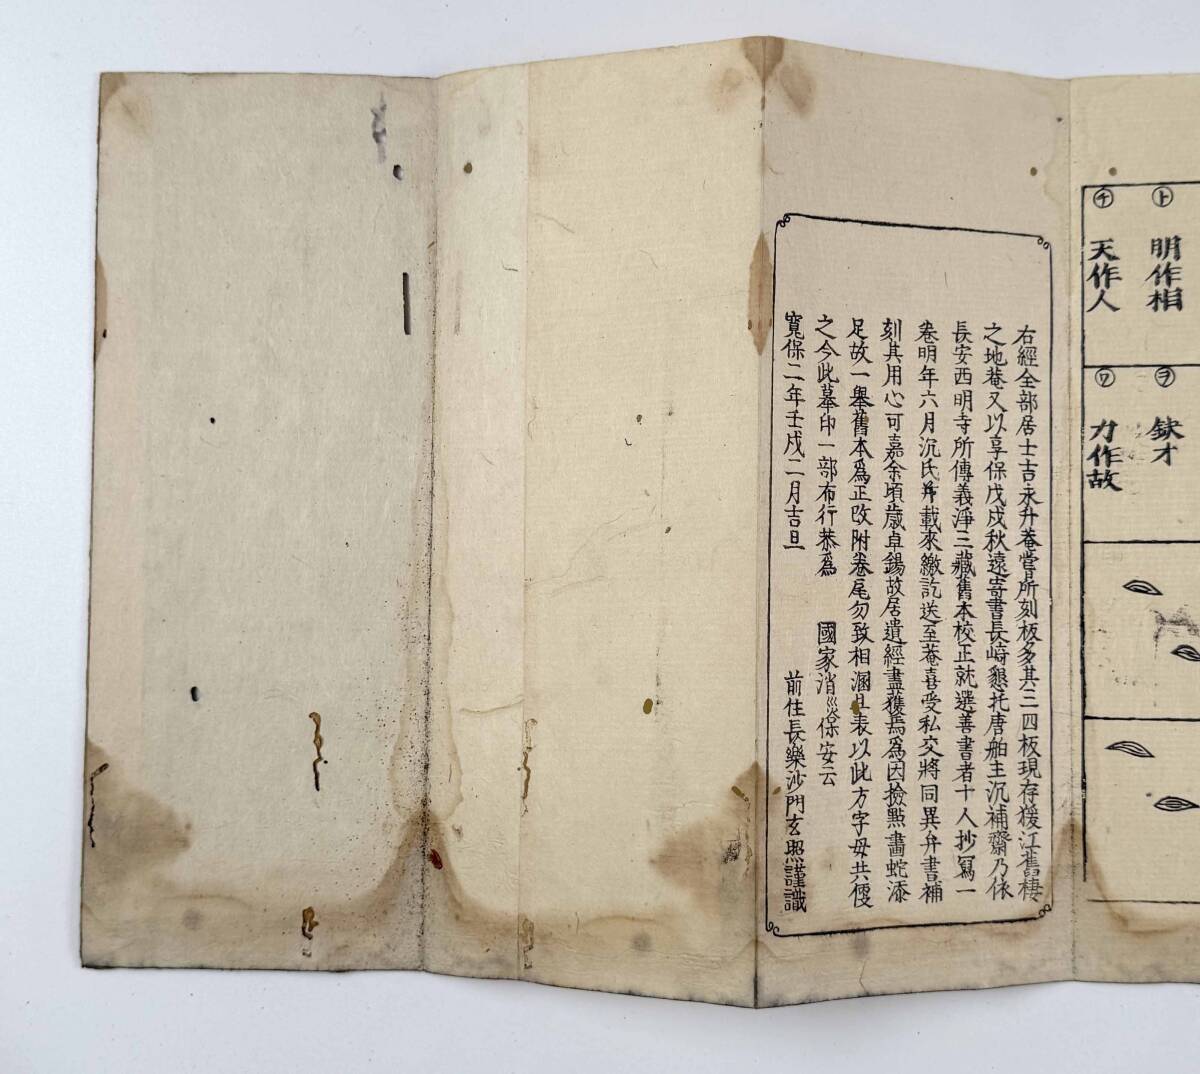 ㋣ 明作相
㋠ 天作人
㋾ 鈌才
㋻ 力作故
右經全部居士吉永升菴嘗所刻板多其三四板現存猨江舊棲
之地菴又以享保戊戌秋遠寄書長崎懇托唐舶主沉補齋乃依
長安西明寺所傳義淨三藏舊本校正就選善書者十人抄寫一
卷明年六月沉氏載來繳訖送至菴喜受私交將同異弁書補
刻其用心可嘉余頃歲卓錫故居遺經盡獲焉爲因撿點畵蛇添
足故一舉舊本爲正改附卷尾勿致相溷且表以此方字母共便
之今此摹印一部布行恭爲 國家消災保安云
寬保二年壬戌二月吉旦 前住長樂沙門玄照謹識